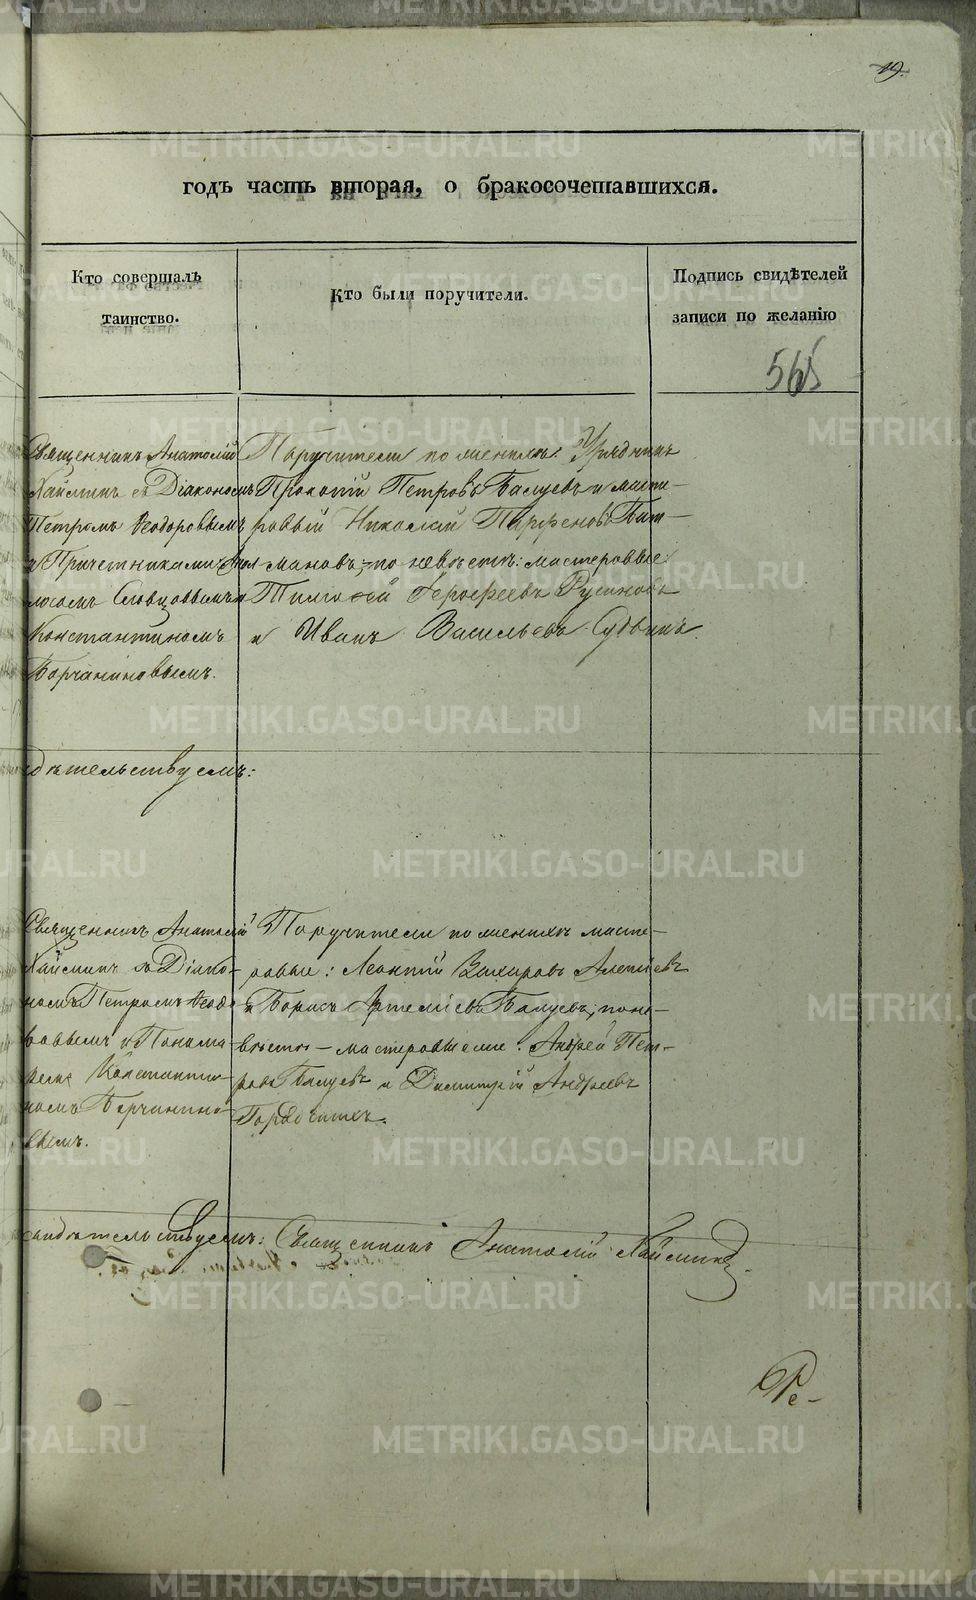 19.
годъ часть вторая, о бракосочетавшихся.
Кто совершалъ
таинство.
Кто были поручители.
Подпись свидѣтелей
записи по желанію
565
Священникъ Анатолій
съ Діакономъ
Петромъ Ѳеодоровымъ
и Причетниками:
Словцовымъ и
Константиномъ
Борчаниновымъ.
Поручители по женихѣ: Урядникъ
Прокопій Петровъ Балуевъ и масте-
ровый Николай Парфеновъ
по невѣстѣ: мастеровые:
Тимофей Герофеевъ Русиновъ
и Иванъ Васильевъ Судвинъ.
дѣтельствуемъ:
Священникъ Анатолій
съ Діако-
номъ Петромъ Ѳеодо-
ровымъ и Понома-
ремъ Константи-
номъ Борчанино-
вымъ.
Поручители по женихѣ масте-
ровые: Леонтій Алексѣевъ
и Борисъ Артеміевъ Балуевъ; по не-
вѣстѣ – мастеровые: Андрей Пет-
ровъ Балуевъ и Димитрій Андреевъ
свидѣтельствуемъ: Священникъ Анатолій
METRIKI.GASO-URAL.RU